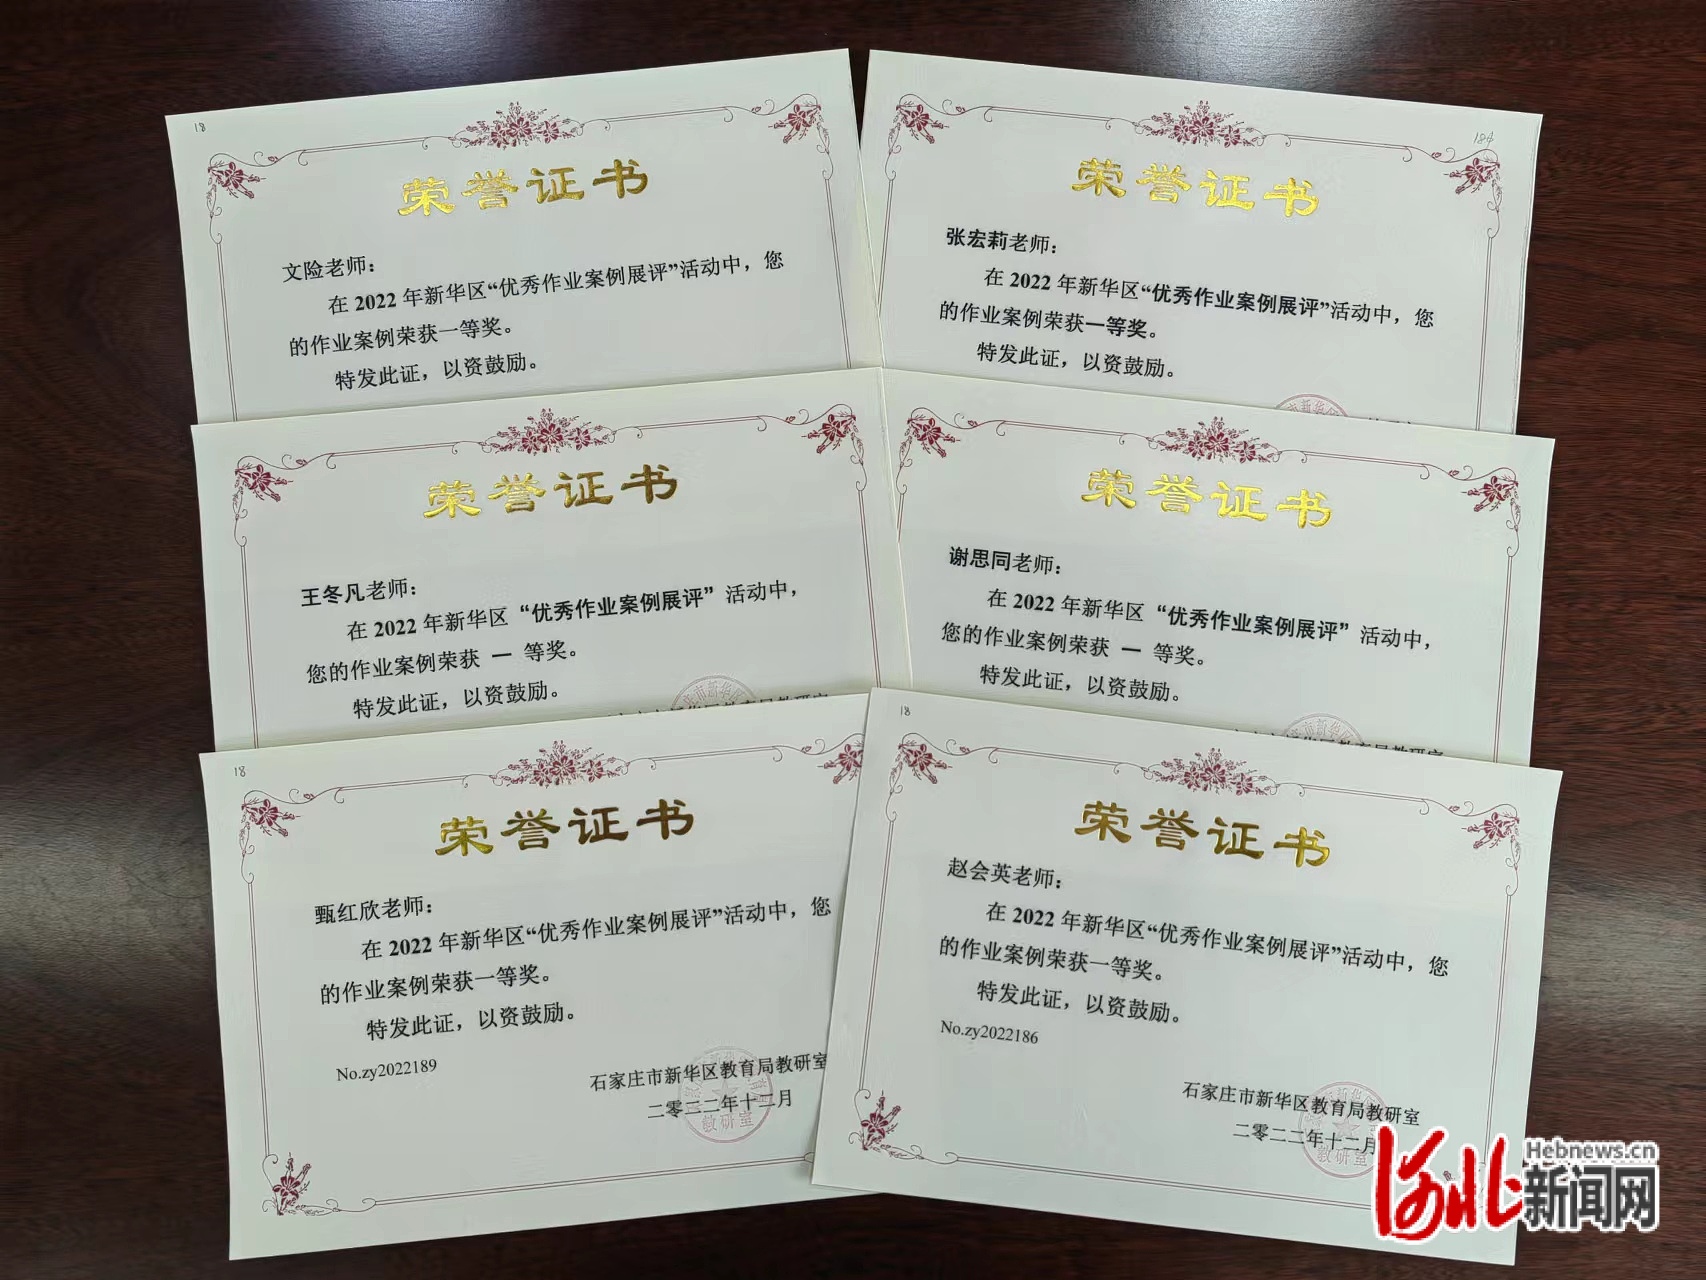 18
荣誉证书
文险老师：
在 2022 年新华区“优秀作业案例展评”活动中，您
的作业案例荣获一等奖。
特发此证，以资鼓励。
184
荣誉证书
张宏莉老师：
在 2022 年新华区“优秀作业案例展评”活动中，您
的作业案例荣获一等奖。
特发此证，以资鼓励。
荣誉证书
王冬凡老师：
在 2022 年新华区 “优秀作业案例展评” 活动中，
您的作业案例荣获 一 等奖。
特发此证，以资鼓励。
荣誉证书
谢思同老师：
在 2022 年新华区 “优秀作业案例展评” 活动中，
您的作业案例荣获 一 等奖。
特发此证，以资鼓励。
18
荣誉证书
甄红欣老师：
在 2022 年新华区“优秀作业案例展评”活动中，您
的作业案例荣获一等奖。
特发此证，以资鼓励。
No.zy2022189
石家庄市新华区教育局教研室
二零二二年十二月
教研室
18
荣誉证书
赵会英老师：
在 2022 年新华区“优秀作业案例展评”活动中，您
的作业案例荣获一等奖。
特发此证，以资鼓励。
No.zy2022186
石家庄市新华区教育局教研室
二零二二年十二月
教研室
河北新闻网
Hebnews.cn